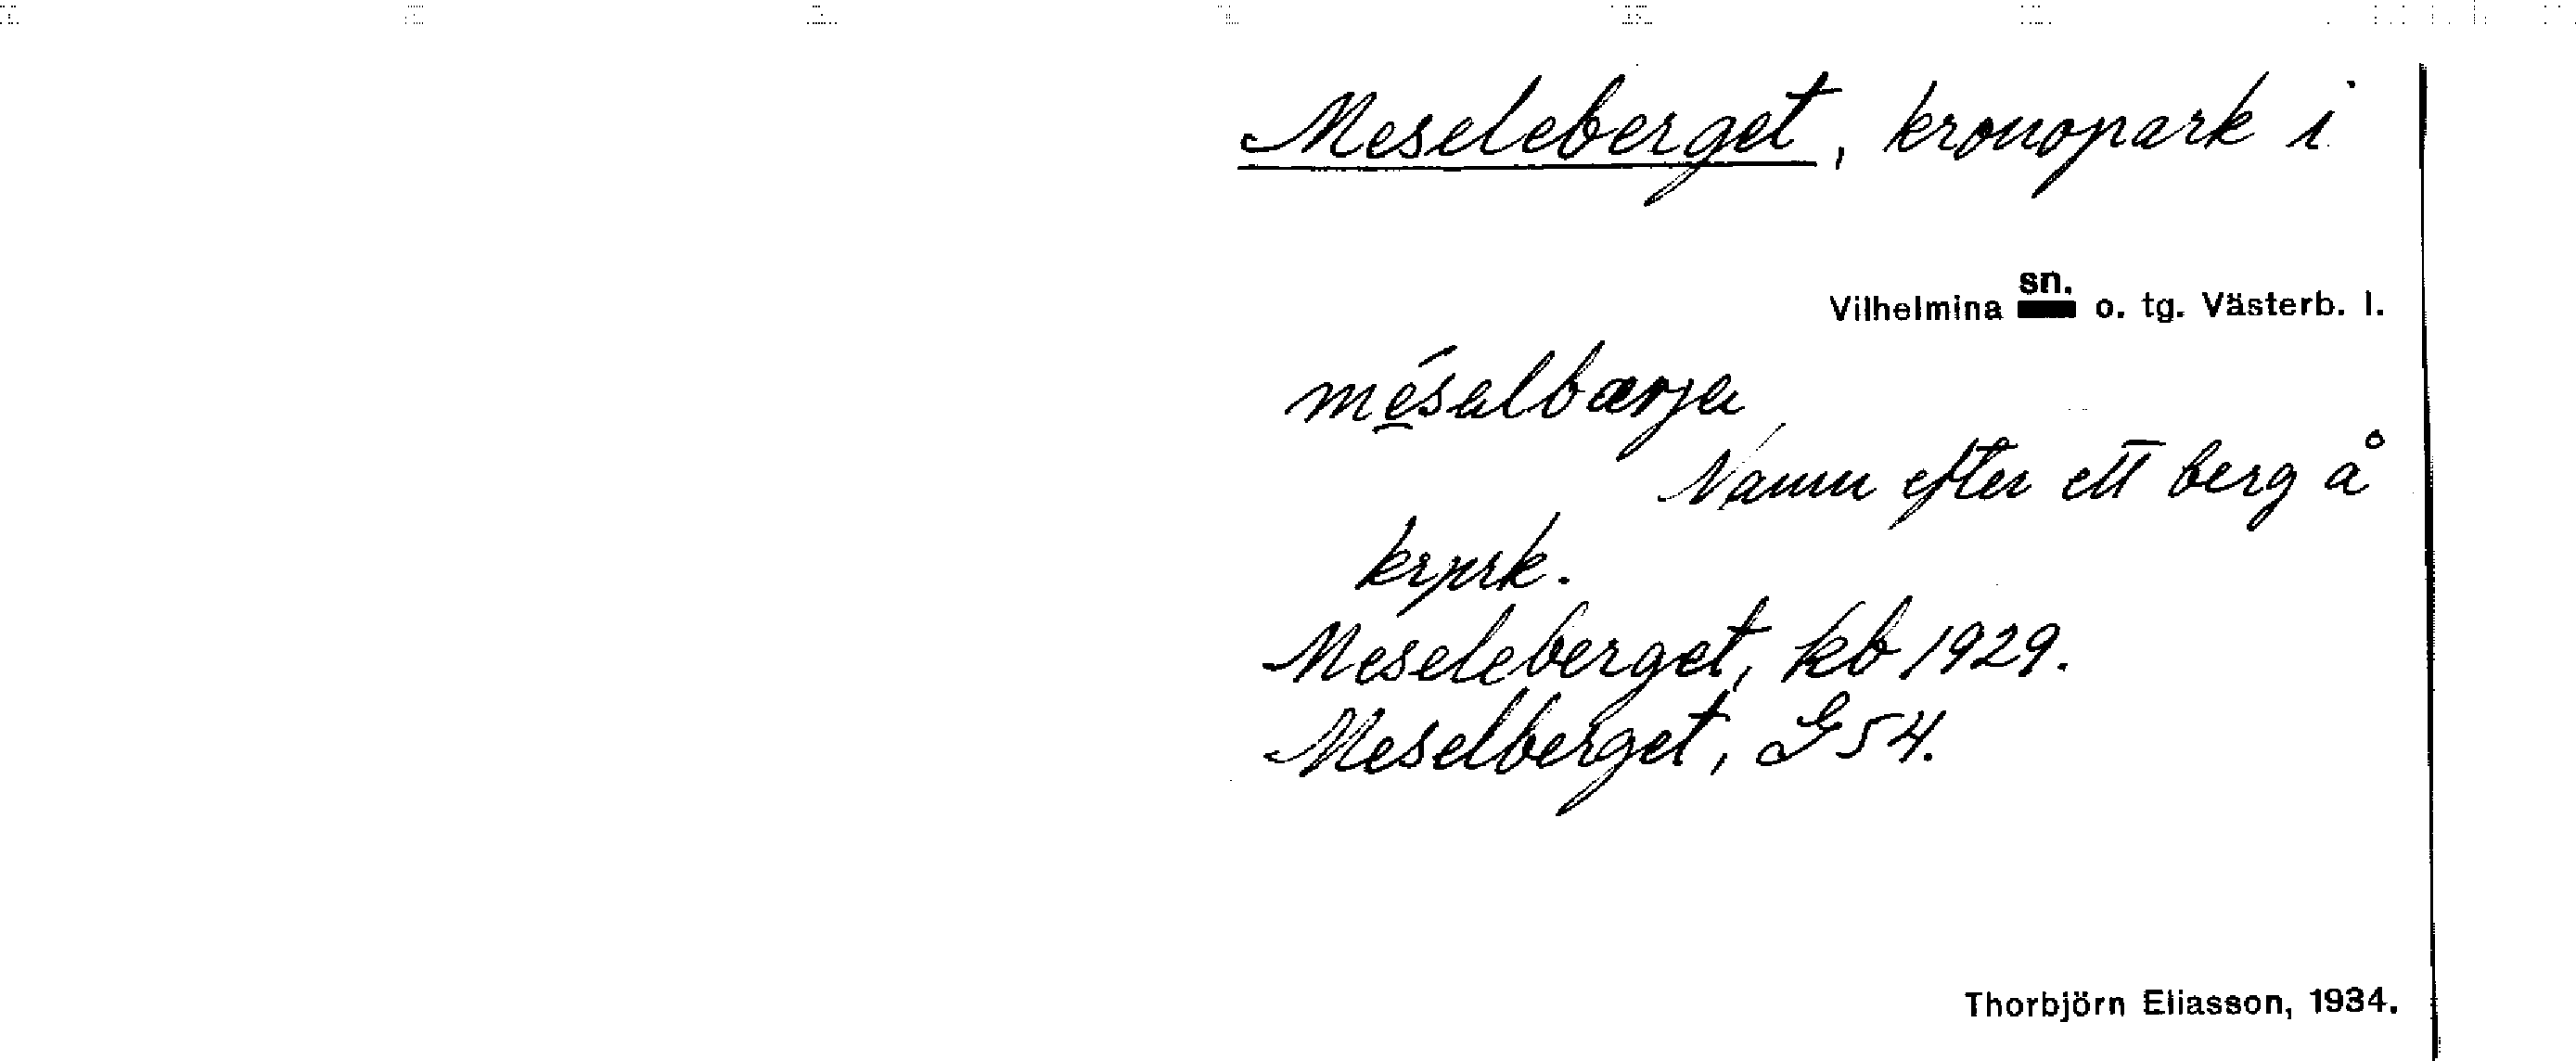 Meseleberget, kronopark i
Vilhelmina sn. o. tg. Västerb. l.
mésalbærja
Namn efter ett berg å
krprk.
Meseleberget, kb 1929.
Meselberget, G 54.
Thorbjörn Eliasson, 1934.